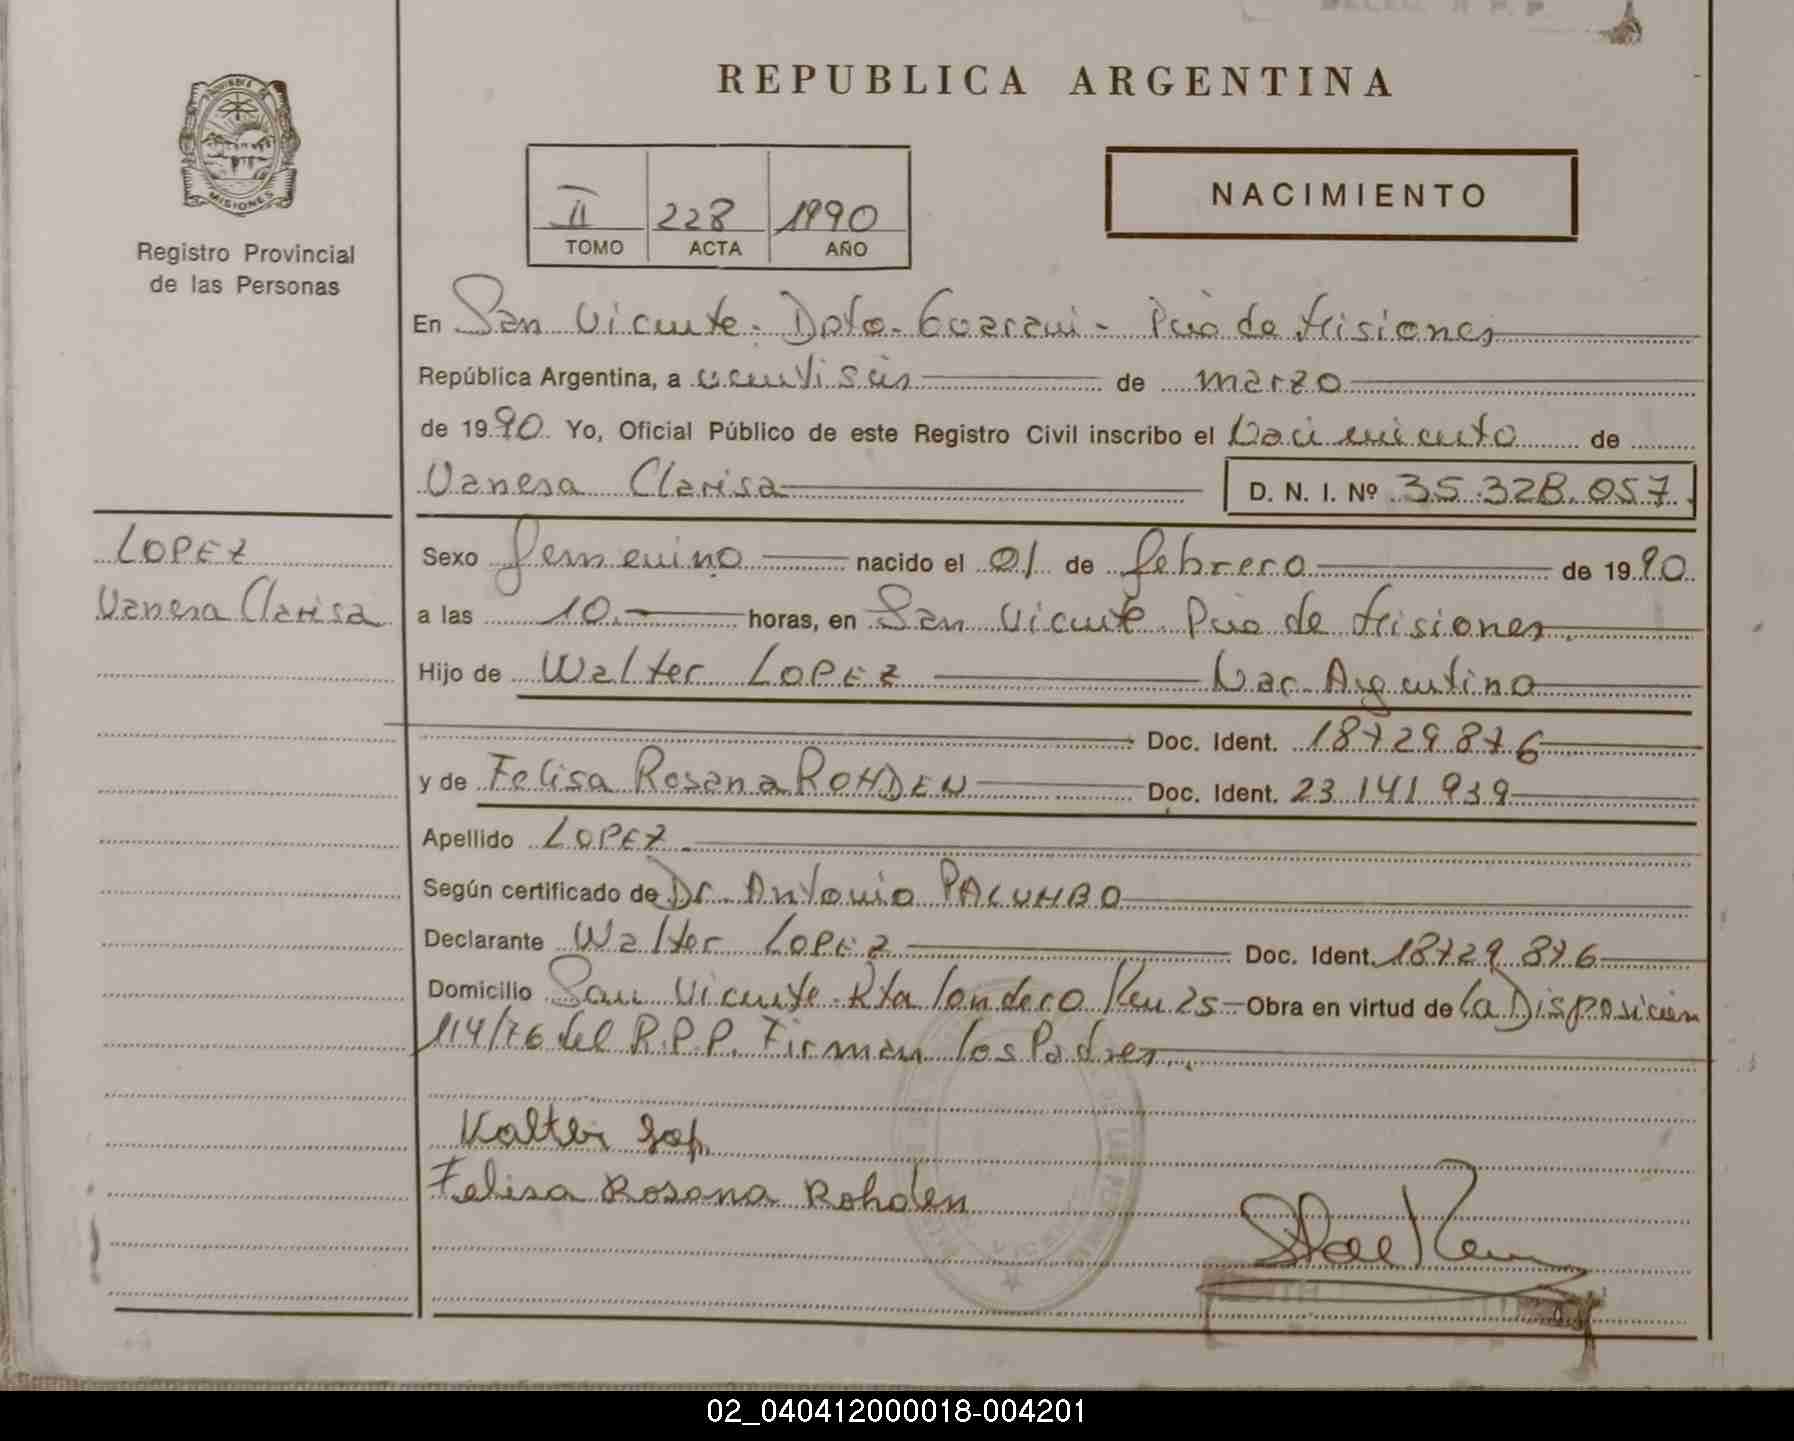 REPUBLICA ARGENTINA
MISIONES
Registro Provincial
de las Personas
II 228 1990
TOMO ACTA AÑO
NACIMIENTO
En San Vicente - Dpto - Guarani - Pcia de Misiones
República Argentina, a ventiseis de marzo
de 1990 Yo, Oficial Público de este Registro Civil inscribo el Nacimiento de
Vanesa Clarisa D. N. I. Nº 35.328.057.
LOPEZ
Vanesa Clarisa
Sexo femenino nacido el 01 de febrero de 1990
a las 10.- horas, en San Vicente Pcia de Misiones
Hijo de Walter LOPEZ Nac. Argentino
Doc. Ident. 18729876
y de Felisa Rosana ROHDEN Doc. Ident. 23 141 939
Apellido LOPEZ
Según certificado de Dr. Antonio PALUMBO
Declarante Walter LOPEZ Doc. Ident. 18729 876
Domicilio San Vicente Rta Londero Km 25 - Obra en virtud de la Disposicion
114/76 del R.P.P. Firman los Padres
Walter Lop
Felisa Rosana Rohden
02_040412000018-004201